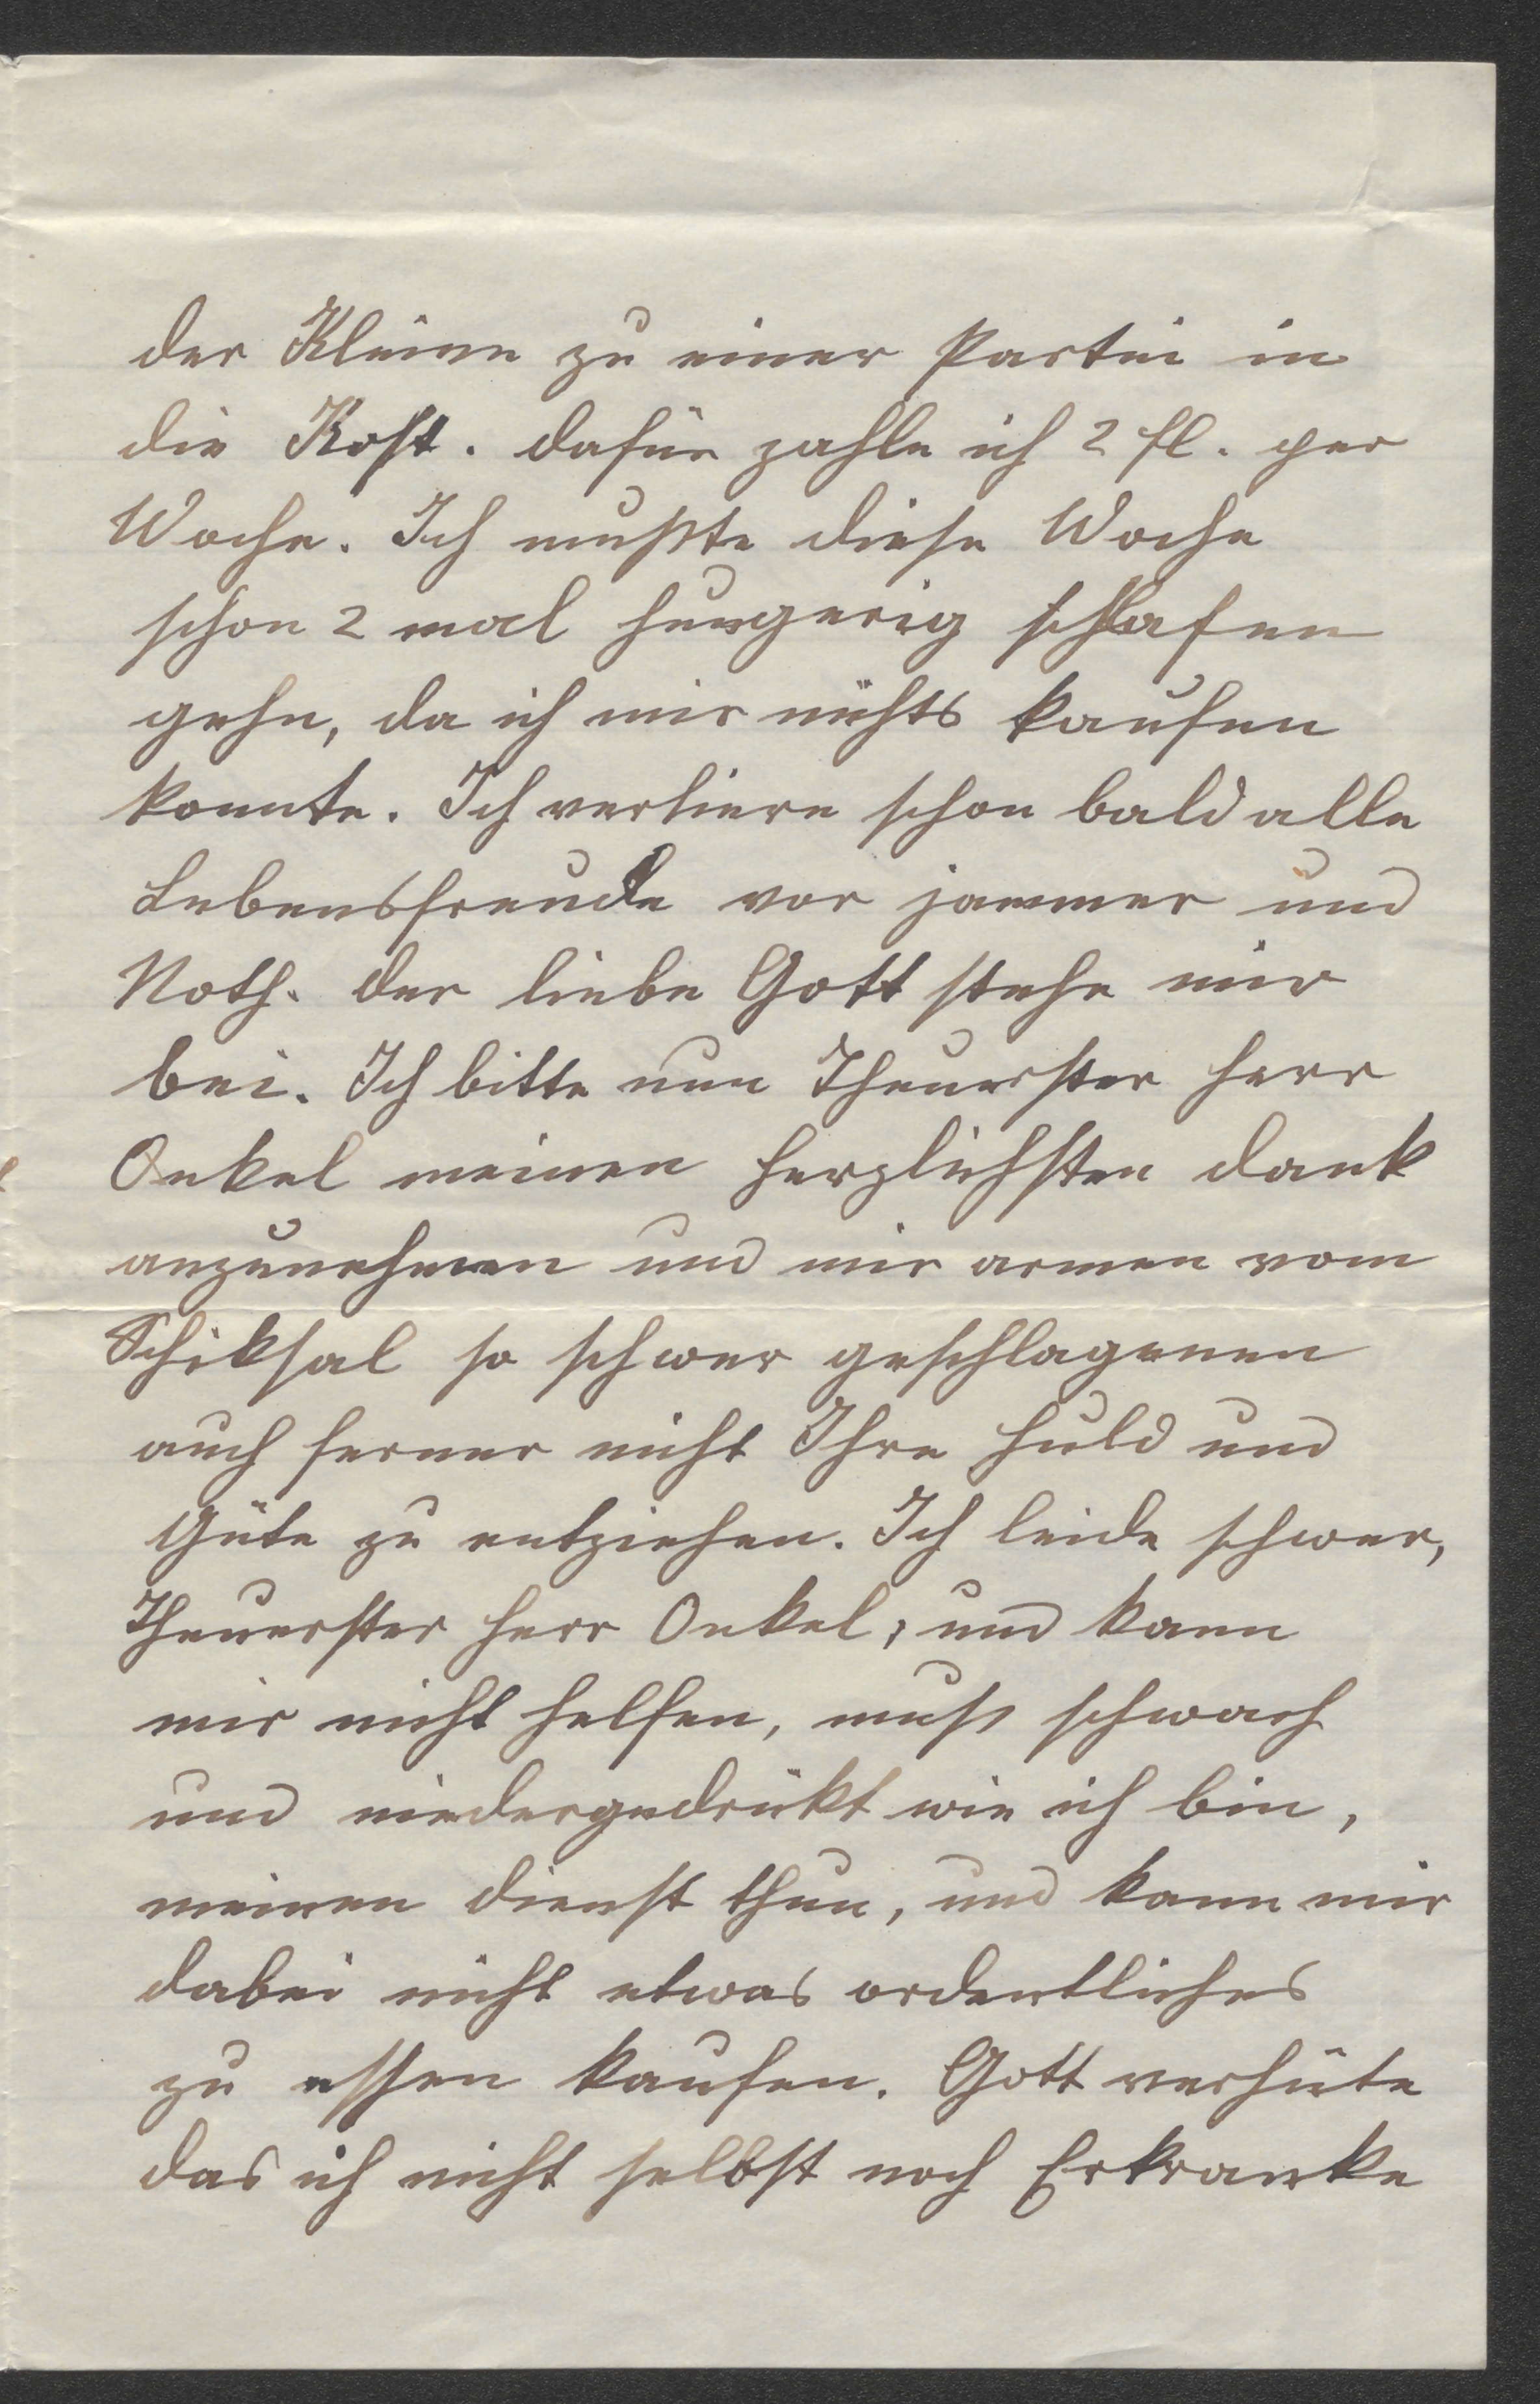 der Kleine zu einer Partei in
die Kost. dafür zahle ich 2 fl. per
Woche. Ich mußte diese Woche
schon 2 mal hungerig schlafen
gehn, da ich mir nichts kaufen
konnte. Ich verliere schon bald alle
Lebensfreude vor jammer und
Noth. der liebe Gott stehe mir
bei. Ich bitte nun Theuerster Herr
Onkel meinen herzlichsten dank
anzunehmen und mir armen vom
Schiksal so schwer geschlagenen
auch ferner nicht Ihre Huld und
Güte zu entziehen. Ich leide schwer,
Theuerster Herr Onkel, und kann
mir nicht helfen, muß schwach
und niedergedrükt wie ich bin,
meinen dienst thun, und kann mir
dabei nicht etwas ordentliches
zu essen kaufen. Gott verhüte
das ich nicht selbst noch Erkranke